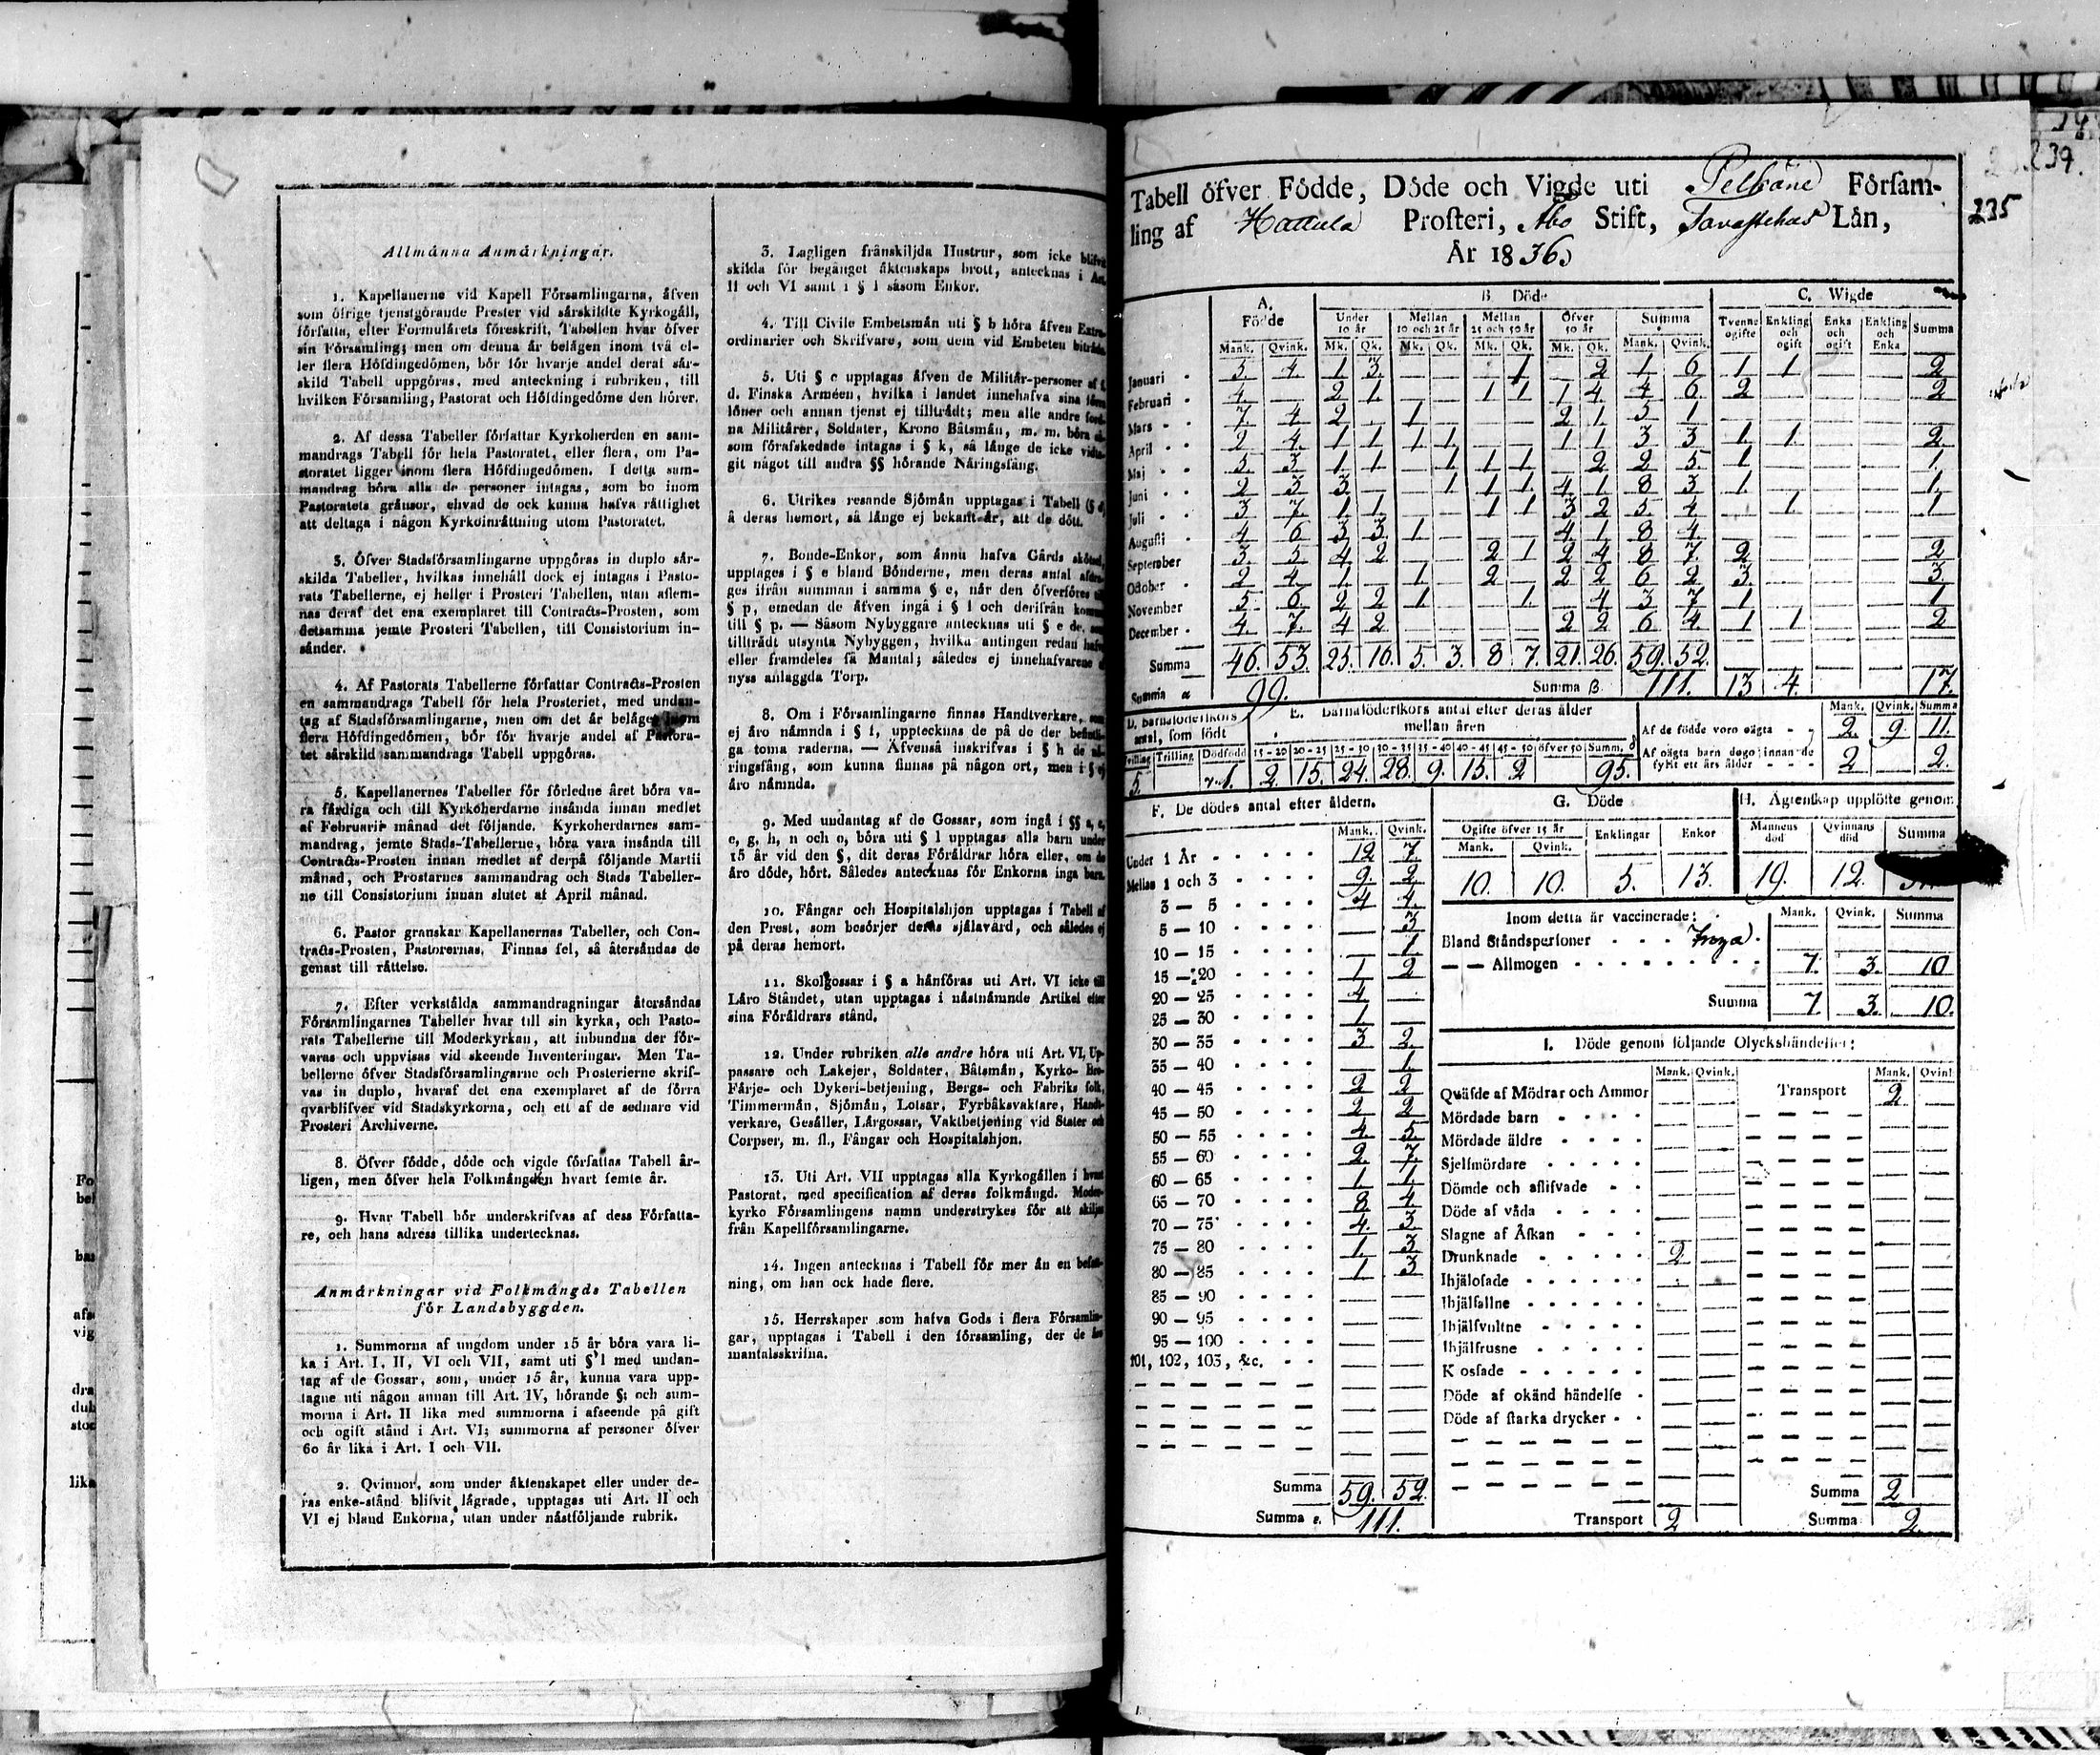 Allmånna Anmårkningar.
1. Kapellanerne vid Kapell Fórsamlingarna, åfven
som öfrige tjenstgórande Prester vid sårskildte Kyrkogåll,
fórfatta, efter Formulårets föreskrift, Tabellen hvar öfver
sin Fórsamling; men om denna år belågen inom två el-
ler flera Hófdingedómen, bór fór hvarje andel deraf sår-
skild Tabell uppgóras, med anteckning i rubriken, till
hvilken Fórsamling, Pastorat och Hófdingedóme den hórer.
2. Af dessa Tabeller fórfattar Kyrkoherden en sam-
mandrags Tabell fór hela Pastoratet, eller flera, om Pa-
storatet ligger inom flera Hófdingedómen. I detta sam-
mandrag bóra alla de personer intagas, som bo inom
Pastoratets grånsor, ehvad de ock kunna hafva råttighet
att deltaga i någon Kyrkoinråttning utom Pastoratet.
3. Öfver Stadsfórsamlingarne uppgóras in duplo sår-
skilda Tabeller, hvilkas innehåll dock ej intagas i Pasto-
rats Tabellerne, ej heller i Prosteri Tabellen, utan aflem-
nas deraf det ena exemplaret till Contracts-Prosten, som
detsamma jemte Prosteri Tabellen, till Consistorium in-
sånder.
4. Af Pastorats Tabellerne fórfattar Contracts-Prosten
en sammandrags Tabell fór hela Prosteriet, med undan-
tag af Stadsfórsamlingarne, men om det år belåget inom
flera Hófdingedómen, bór fór hvarje andel af Pastora-
tet sårskild sammandrags Tabell uppgóras.
5. Kapellanernes Tabeller fór fórledne året bóra va-
ra fårdiga och till Kyrkoherdarne insånda innan medlet
af Februarii månad det fóljande. Kyrkoherdarnes sam-
mandrag, jemte Stads-Tabellerne, bóra vara insånda till
Contracts-Prosten innan medlet af derpå fóljande Martii
månad, och Prostarnes sammandrag och Stads Tabeller-
ne till Consistorium innan slutet af April månad.
6. Pastor granskar Kapellanernas Tabeller, och Con-
tracts-Prosten, Pastorernas. Finnas fel, så återsåndas de
genast till råttelse.
7. Efter verkstålda sammandragningar återsåndas
Fórsamlingarnes Tabeller hvar till sin kyrka, och Pasto-
rats Tabellerne till Moderkyrkan, att inbundna der fór-
varas och uppvisas vid skeende Inventeringar. Men Ta-
bellerne öfver Stadsfórsamlingarne och Prosterierne skrif-
vas in duplo, hvaraf det ena exemplaret af de fórra
qvarblifver vid Stadskyrkorna, och ett af de sednare vid
Prosteri Archiverne.
8. Öfver fódde, dóde och vigde fórfattas Tabell år-
ligen, men öfver hela Folkmångden hvart femte år.
9. Hvar Tabell bór underskrifvas af dess Fórfatta-
re, och hans adress tillika undertecknas.
Anmårkningar vid Folkmångds Tabellen
fór Landsbyggden.
1. Summorna af ungdom under 15 år bóra vara li-
ka i Art. I, II, VI och VII, samt uti § l med undan-
tag af de Gossar, som, under 15 år, kunna vara upp-
tagne uti någon annan till Art. IV, hórande §; och sum-
morna i Art. II lika med summorna i afseende på gift
och ogift stånd i Art. VI; summorna af personer öfver
60 år lika i Art. I och VII.
2. Qvinnor, som under åktenskapet eller under de-
ras enke-stånd blifvit lågrade, upptagas uti Art. II och
VI ej bland Enkorna, utan under nåstfóljande rubrik.
3. Lagligen frånskiljda Hustrur, som icke blifvit
skilda fór begånget åktenskaps brott, antecknas i Art.
II och VI samt i § l såsom Enkor.
4. Till Civile Embetsmån uti § b hóra åfven Extra-
ordinarier och Skrifvare, som dem vid Embeten bitråda.
5. Uti § c upptagas åfven de Militår-personer af f.
d. Finska Arméen, hvilka i landet innehafva sina
lóner och annan tjenst ej tilltrådt; men alle andre
na Militårer, Soldater, Krono Båtsmån, m. m. bóra
som fórafskedade intagas i § k, så långe de icke
git något till andra §§ hórande Nåringsfång.
6. Utrikes resande Sjómån upptagas i Tabell (§ d)
å deras hemort, så långe ej bekant år, att de dótt.
7. Bonde-Enkor, som ånnu hafva Gårds skótsel,
upptages i § e bland Bónderne, men deras antal
ges ifrån summan i samma § e, når den öfverfóres
§ p, emedan de åfven ingå i § l och derifrån
till § p. — Såsom Nybyggare antecknas uti § e de, som
tilltrådt utsynta Nybyggen, hvilka antingen redan
eller framdeles få Mantal; således ej innehafvarene
nyss anlaggda Torp.
8. Om i Fórsamlingarne finnas Handtverkare, som
ej åro nåmnda i § f, upptecknas de på de der
ga toma raderna. — Åfvenså inskrifvas i § h de
ringsfång, som kunna finnas på någon ort, men i § ej
åro nåmnda.
9. Med undantag af de Gossar, som ingå i §§ a, c,
e, g, h, n och o, bóra uti § l upptagas alla barn under
15 år vid den §, dit deras Fóråldrar hóra eller, om de
åro dóde, hórt. Således antecknas fór Enkorna inga barn.
10. Fångar och Hospitalshjon upptagas i Tabell af
den Prest, som besórjer deras sjålavård, och således ej
på deras hemort.
11. Skolgossar i § a hånfóras uti Art. VI icke till
Låro Ståndet, utan upptagas i nåstnåmnde Artikel efter
sina Fóråldrars stånd.
12. Under rubriken alle andre hóra uti Art. VI, Up-
passare och Lakejer, Soldater, Båtsmån, Kyrko- Bro-
Fårje- och Dykeri-betjening, Bergs- och Fabriks folk,
Timmermån, Sjómån, Lotsar, Fyrbåksvaktare, Handt-
verkare, Gesåller, Lårgossar, Vaktbetjening vid Slater och
Corpser, m. fl., Fångar och Hospitalshjon.
13. Uti Art. VII upptagas alla Kyrkogållen i hvart
Pastorat, med specification af deras folkmångd. Moder-
kyrko Fórsamlingens namn understrykes fór att skiljas
från Kapellfórsamlingarne.
14. Ingen antecknas i Tabell fór mer ån en befatt-
ning, om han ock hade flere.
15. Herrskaper som hafva Gods i flera Fórsamlin-
gar, upptagas i Tabell i den fórsamling, der de åro
mantalsskrifna.
239.
235
Tabell öfver Födde, Döde och Vigde uti Pelkäne Försam-
ling af Hattula Prosteri, Åbo Stift, Tavastehus Län,
År 1836
A. Födde B. Döde C. Wigde
Under 10 år Mellan 10 och 25 år Mellan 25 och 50 år Öfver 50 år Summa Tvenne ogifte Enkling och ogift Enka och ogift Enkling och Enka Summa
Mank. Qvink. Mk. Qk. Mk. Qk. Mk. Qk. Mk. Qk. Mank. Qvink.
Januari 5. 4. 1 3. 1 2 1 6 1 1 2
Februari 4. 2 1. 1 1 1 4 4 6 2 2
Mars 7. 4 2 1 2 1. 5 1
April 2 4. 1 1 1 1. 1 1 3 3 1 1. 2
Maj 5. 3 1 1. 1 1 1 2 2 5. 1 1.
Juni 2 3 3 1 1 1. 4 1 8 3 1 1.
Juli 3 7. 1 1 1 1 3 2 5 4 1 1
Augusti 4 6 3 3 1 4 1 8 4
September 3 5 4 2 2 1 2 4 8 7 2 2
October 2 4. 1 1 2 2 2 6 2 3 3.
November 5. 6 2 2 1 1. 4 3 7 1 1
December 4. 7. 4 2 2 2 6 4. 1 1 2
Summa 46. 53. 25. 16. 5. 3. 8 7. 21. 26. 59. 52.
Summa α 99. Summa β 111. 13 4. 17.
D. Barnaföderskors antal, som födt
E. Barnaföderskors antal efter deras ålder mellan åren
Tvilling Trilling Dödfödd 15-20 20-25 25-30 30-35 35-40 40-45 45-50 öfver 50 Summ. δ
5. 1. 2. 15. 24. 28. 9. 15. 2 95.
Mank. Qvink. Summa
Af de födde voro oägta 2. 9. 11.
Af oägta barn dogo innan de fyllt ett års ålder 2 2.
F. De dödes antal efter åldern.
Mank. Qvink.
Under 1 År 12 7
Mellan 1 och 3 9. 2
3 — 5 4 4.
5 — 10 3
10 — 15 1
15 — 20 1 2
20 — 25 4.
25 — 30 1.
30 — 35 3 2.
35 — 40 1.
40 — 45 2 2
45 — 50 2 2
50 — 55 4. 5
55 — 60 2. 7
60 — 65 1 1.
65 — 70 8. 4
70 — 75 4. 3
75 — 80 1. 3
80 — 85 1 3
85 — 90
90 — 95
95 — 100
101, 102, 103, &c.
Summa 59. 52
Summa ε. 111.
G. Döde
Ogifte öfver 15 år Enklingar Enkor
Mank. Qvink.
10. 10. 5. 13.
H. Ägtenskap upplöste genom
Mannens död Qvinnans död Summa
19. 12.
Inom detta år vaccinerade: Mank. Qvink. Summa
Bland Ståndspersoner Inga
— — Allmogen 7. 3. 10
Summa 7. 3. 10.
I. Döde genom följande Olyckshändelser:
Mank. Qvink. Mank. Qvink
Quäfde af Mödrar och Ammor Transport 2
Mördade barn
Mördade äldre
Sjelfmördare
Dömde och aflifvade
Döde af våda
Slagne af Åskan
Drunknade 2
Ihjälosade
Ihjälfallne
Ihjälsvultne
Ihjälfrusne
K osfade
Döde af okänd händelse
Döde af starka drycker
Summa 2
Transport 2 Summa 2.